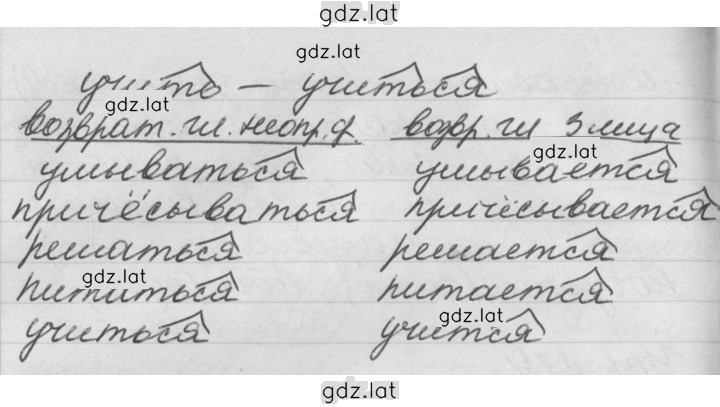 gdz.lat
gdz.lat
учить – учиться
gdz.lat
возврат. гл. неопр. ф. возвр. гл 3 лица
gdz.lat
умываться умывается
причёсываться причёсывается
решаться решается
gdz.lat
питаться питается
gdz.lat
учиться учится
gdz.lat